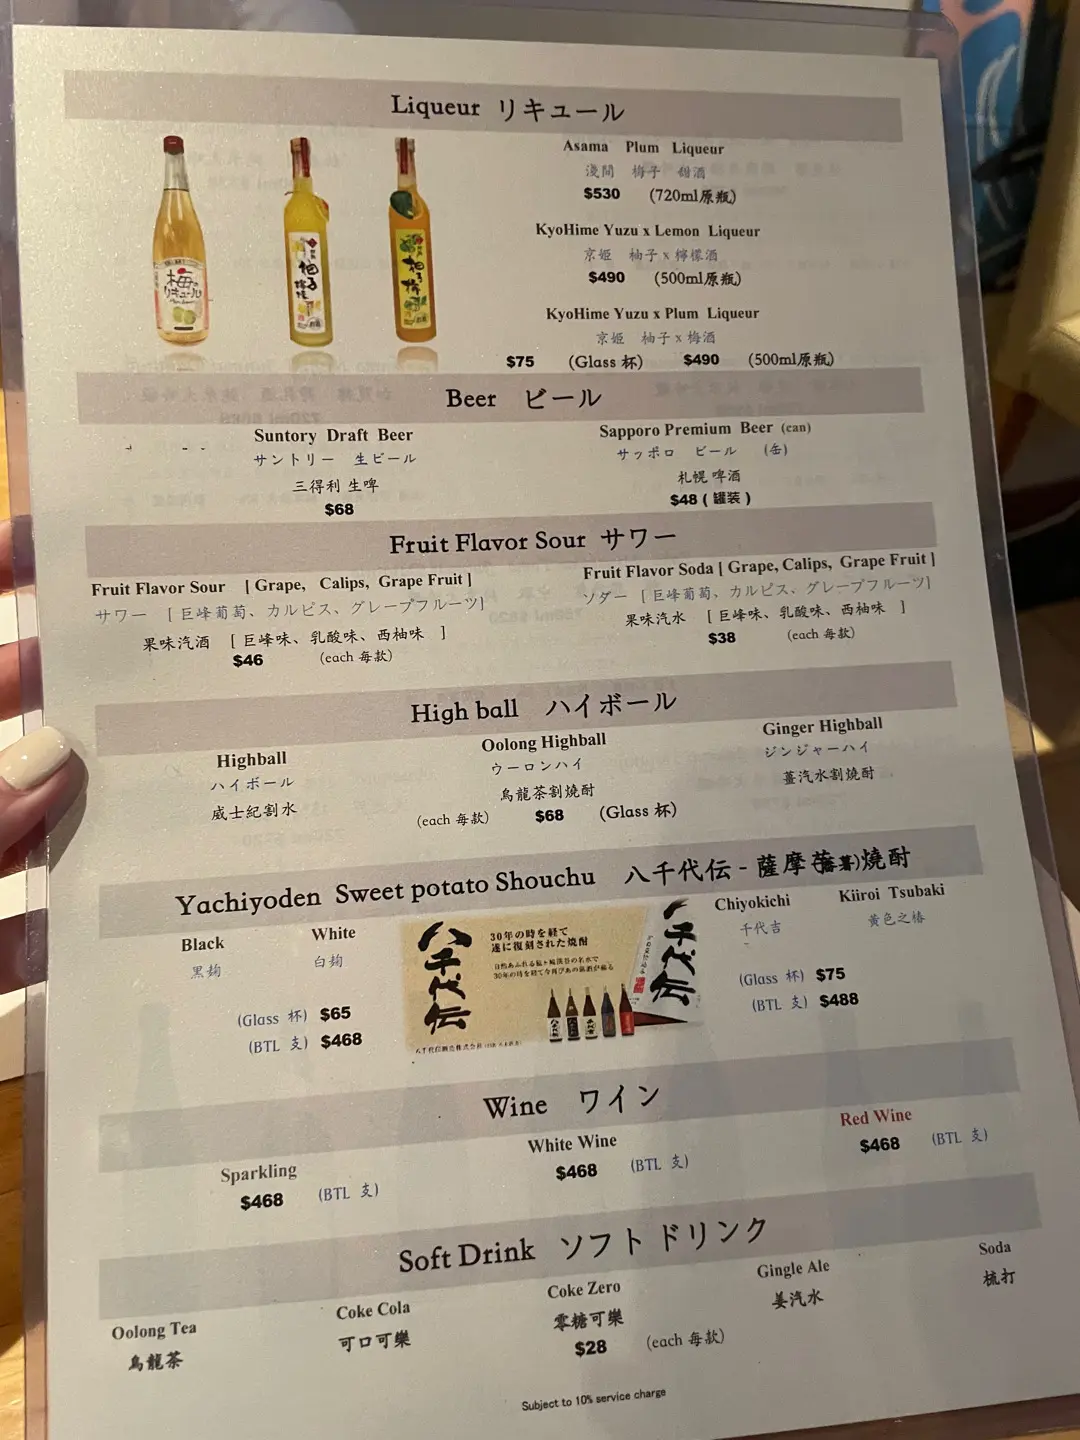 Liqueur リキュール
Asama Plum Liqueur
浅間 梅子 甜酒
$530 (720ml原瓶)
KyoHime Yuzu x Lemon Liqueur
京姬 柚子 x 檸檬酒
$490 (500ml原瓶)
KyoHime Yuzu x Plum Liqueur
京姬 柚子 x 梅酒
$75 (Glass 杯) $490 (500ml原瓶)
梅の
リキュール
Beer ビール
Suntory Draft Beer
サントリー 生ビール
三得利 生啤
$68
Sapporo Premium Beer (can)
サッポロ ビール (缶)
札幌 啤酒
$48 ( 罐装 )
Fruit Flavor Sour サワー
Fruit Flavor Sour [ Grape, Calips, Grape Fruit ]
サワー [ 巨峰葡萄、カルピス、グレープフルーツ]
果味汽酒 [ 巨峰味、乳酸味、西柚味 ]
$46 (each 每款)
Fruit Flavor Soda [ Grape, Calips, Grape Fruit ]
ソダー [ 巨峰葡萄、カルピス、グレープフルーツ]
果味汽水 [ 巨峰味、乳酸味、西柚味 ]
$38 (each 每款)
High ball ハイボール
Highball
ハイボール
威士紀割水
Oolong Highball
ウーロンハイ
烏龍茶割焼酎
Ginger Highball
ジンジャーハイ
薑汽水割焼酎
(each 每款) $68 (Glass 杯)
Yachiyoden Sweet potato Shouchu 八千代伝 - 薩摩 焼酎
Black
黒麹
White
白麹
(Glass 杯) $65
(BTL 支) $468
八千代伝
30年の時を経て
遂に復刻された焼酎
八千代伝
Chiyokichi
千代吉
Kiiroi Tsubaki
黄色之椿
(Glass 杯) $75
(BTL 支) $488
Wine ワイン
Sparkling
$468 (BTL 支)
White Wine
$468 (BTL 支)
Red Wine
$468 (BTL 支)
Soft Drink ソフト ドリンク
Oolong Tea
烏龍茶
Coke Cola
可口可樂
Coke Zero
零糖可樂
Gingle Ale
姜汽水
Soda
梳打
$28 (each 每款)
Subject to 10% service charge